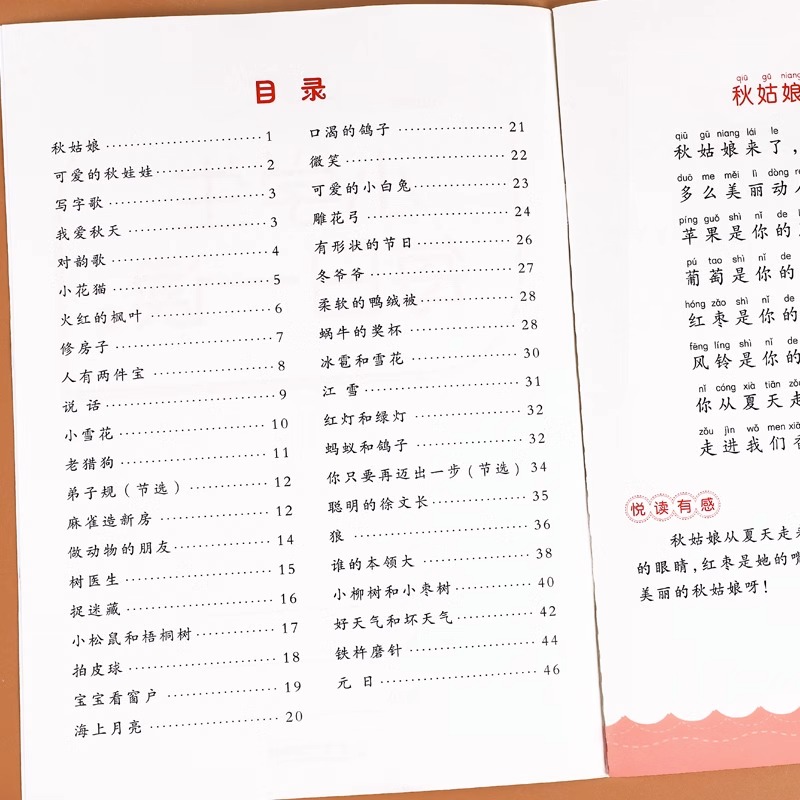 目录
秋姑娘 1
可爱的秋娃娃 2
写字歌 3
我爱秋天 3
对韵歌 4
小花猫 5
火红的枫叶 6
修房子 7
人有两件宝 8
说 话 9
小雪花 10
老猎狗 11
弟子规（节选） 12
麻雀造新房 12
做动物的朋友 14
树医生 15
捉迷藏 16
小松鼠和梧桐树 17
拍皮球 18
宝宝看窗户 19
海上月亮 20
口渴的鸽子 21
微笑 22
可爱的小白兔 23
雕花弓 24
有形状的节日 26
冬爷爷 27
柔软的鸭绒被 28
蜗牛的奖杯 28
冰雹和雪花 30
江 雪 31
红灯和绿灯 32
蚂蚁和鸽子 32
你只要再迈出一步（节选） 34
聪明的徐文长 35
狼 36
谁的本领大 38
小柳树和小枣树 40
好天气和坏天气 42
铁杵磨针 44
元 日 46
qiū gū niang
秋姑娘
qiū gū niang lái le
秋姑娘来了，
duō me měi lì dòng
多么美丽动
píng guǒ shì nǐ de
苹果是你的
pú tao shì nǐ de
葡萄是你的
hóng zǎo shì nǐ de
红枣是你的
fēng líng shì nǐ de
风铃是你的
nǐ cóng xià tiān zǒu
你从夏天走
zǒu jìn wǒ men
走进我们
悦读有感
秋姑娘从夏天走
的眼睛，红枣是她的嘴
美丽的秋姑娘呀！